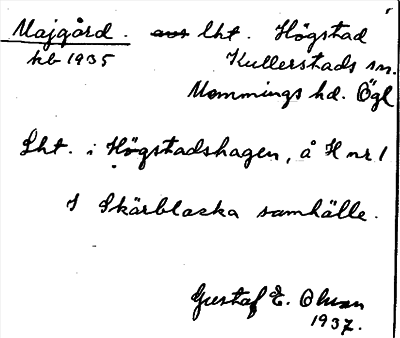 Majgård. avs lht. Högstad
hb 1935 Kullerstads sn.
Memmings hd. Ögl
Lht. i Högstadshagen, å H nr 1
I Skärblacka samhälle.
Gustaf E. Olsson
1937.